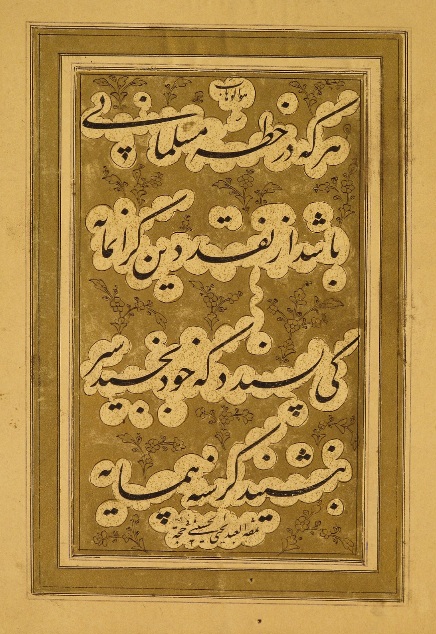 هوالوهاب
هر که در خطه مسلمانی
باشد از نقد دین گرانمایه
کی پسندد که خود بخسبد سیر
بنشیند گرسنه همسایه
العبد الحسینی